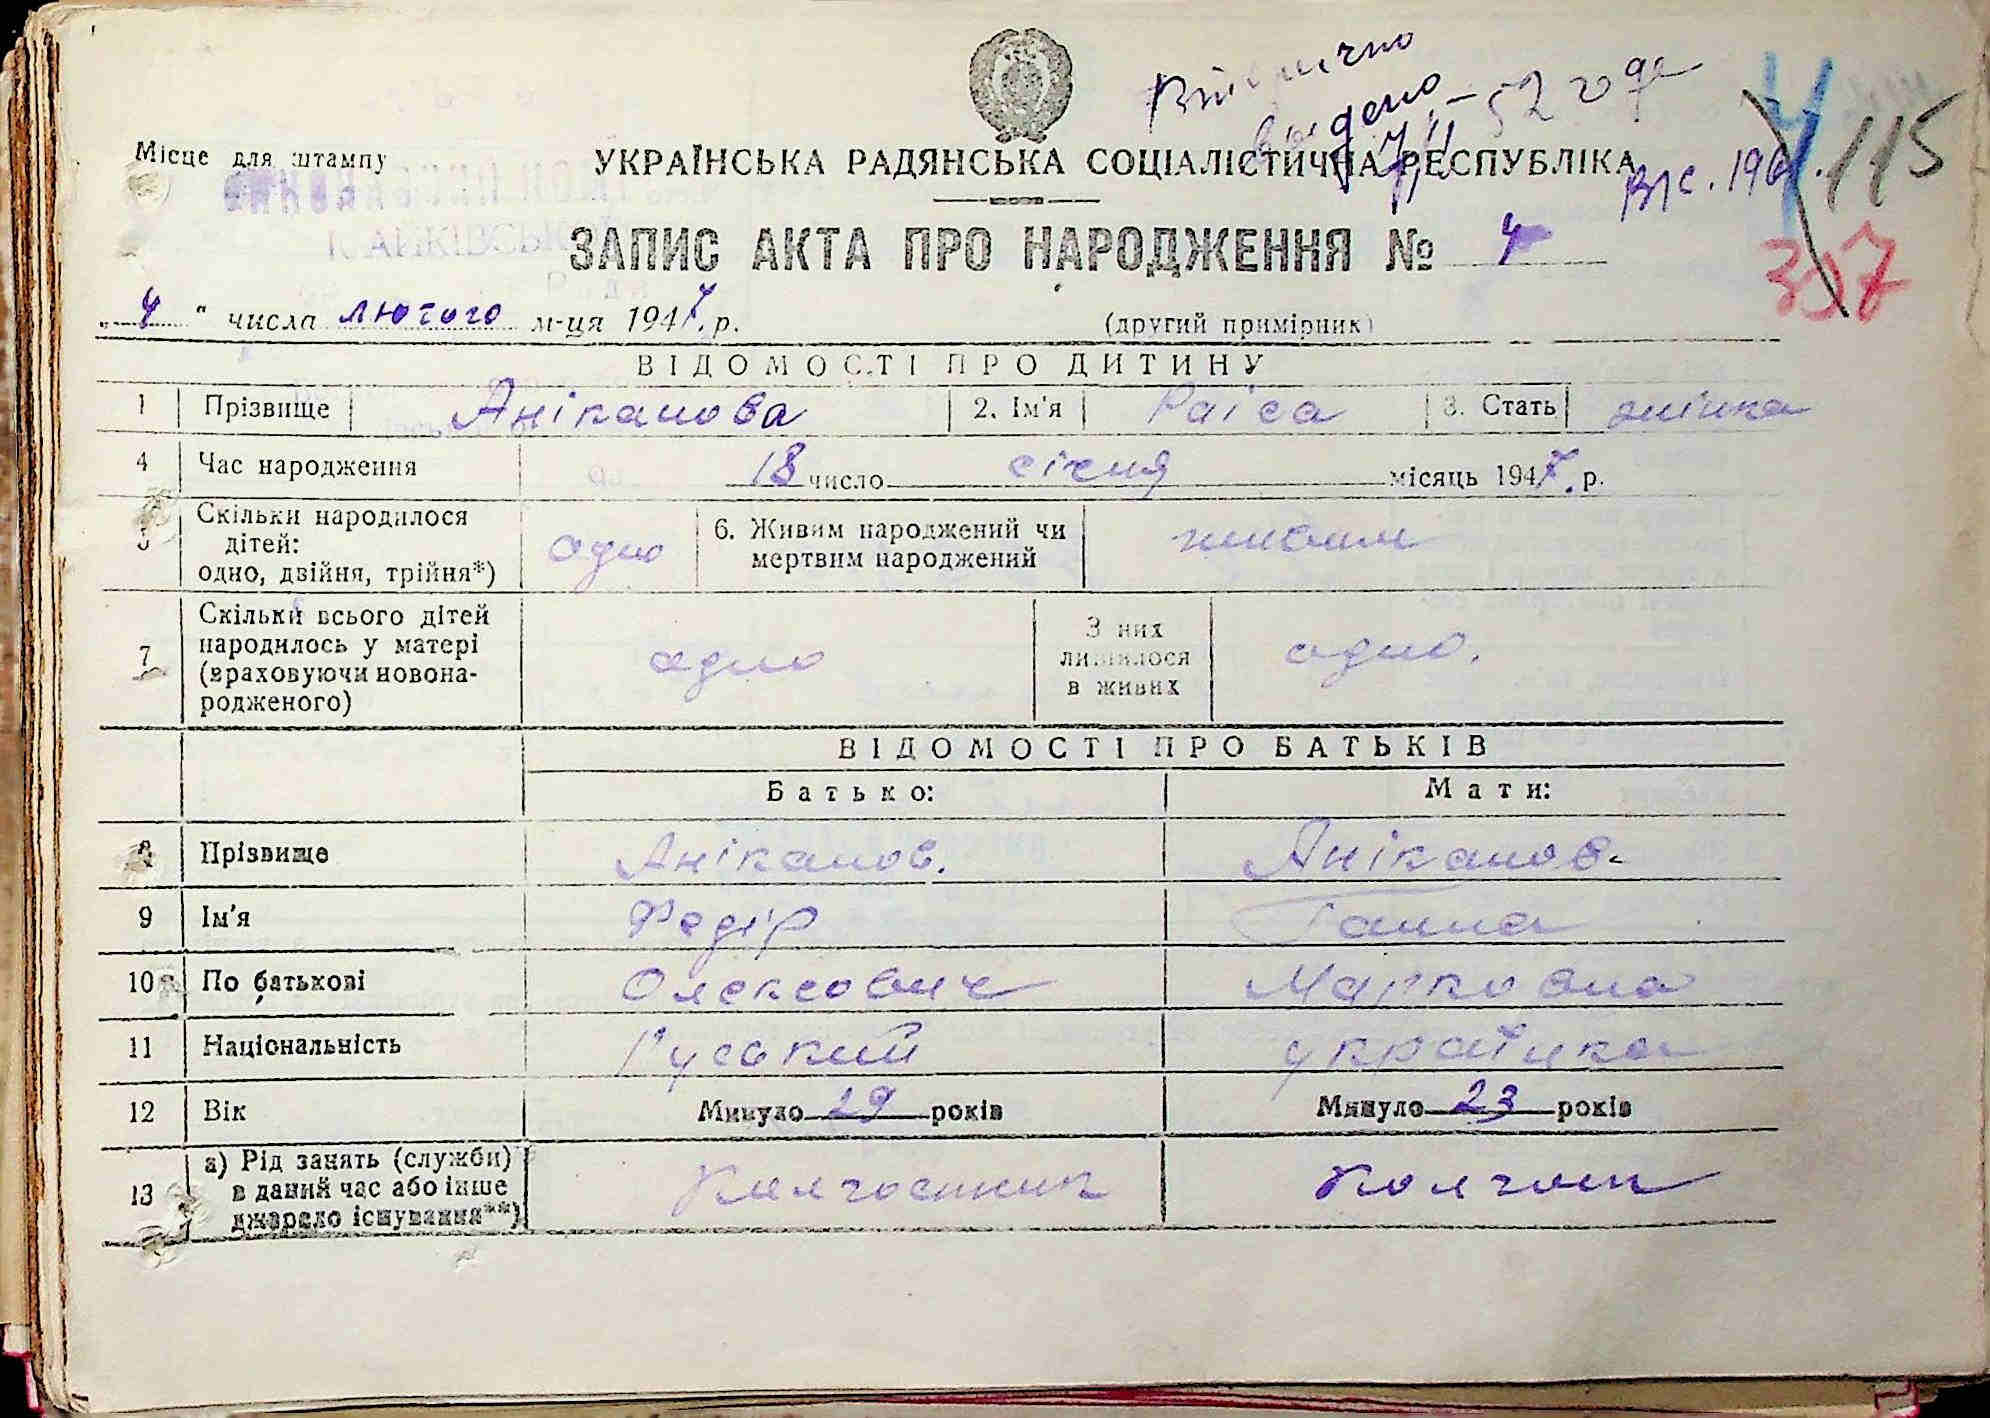 Вторично
видено
7/II-52 года
Місце для штампу
УКРАЇНСЬКА РАДЯНСЬКА СОЦІАЛІСТИЧНА РЕСПУБЛІКА
115
ЗАПИС АКТА ПРО НАРОДЖЕННЯ № 4
307
„4" числа лютого м-ця 1947 р.
(другий примірник)
ВІДОМОСТІ ПРО ДИТИНУ
1 Прізвище Аніканова 2. Ім'я Раіса 3. Стать жінка
4 Час народження 18 число січня місяць 1947. р.
5 Скільки народилося дітей: одно, двійня, трійня*) одно 6. Живим народжений чи мертвим народжений живим
7 Скільки всього дітей народилось у матері (враховуючи новонародженого) одно З них лишилося в живих одно.
ВІДОМОСТІ ПРО БАТЬКІВ
Батько: Мати:
8 Прізвище Аніканов. Аніканов.
9 Ім'я Федір Ганна
10 По батькові Олексович Марковна
11 Національність Руський українка
12 Вік Минуло 29 років Минуло 23 років
13 а) Рід занять (служби) в даний час або інше джерело існування**) Колгоспник Колгосп